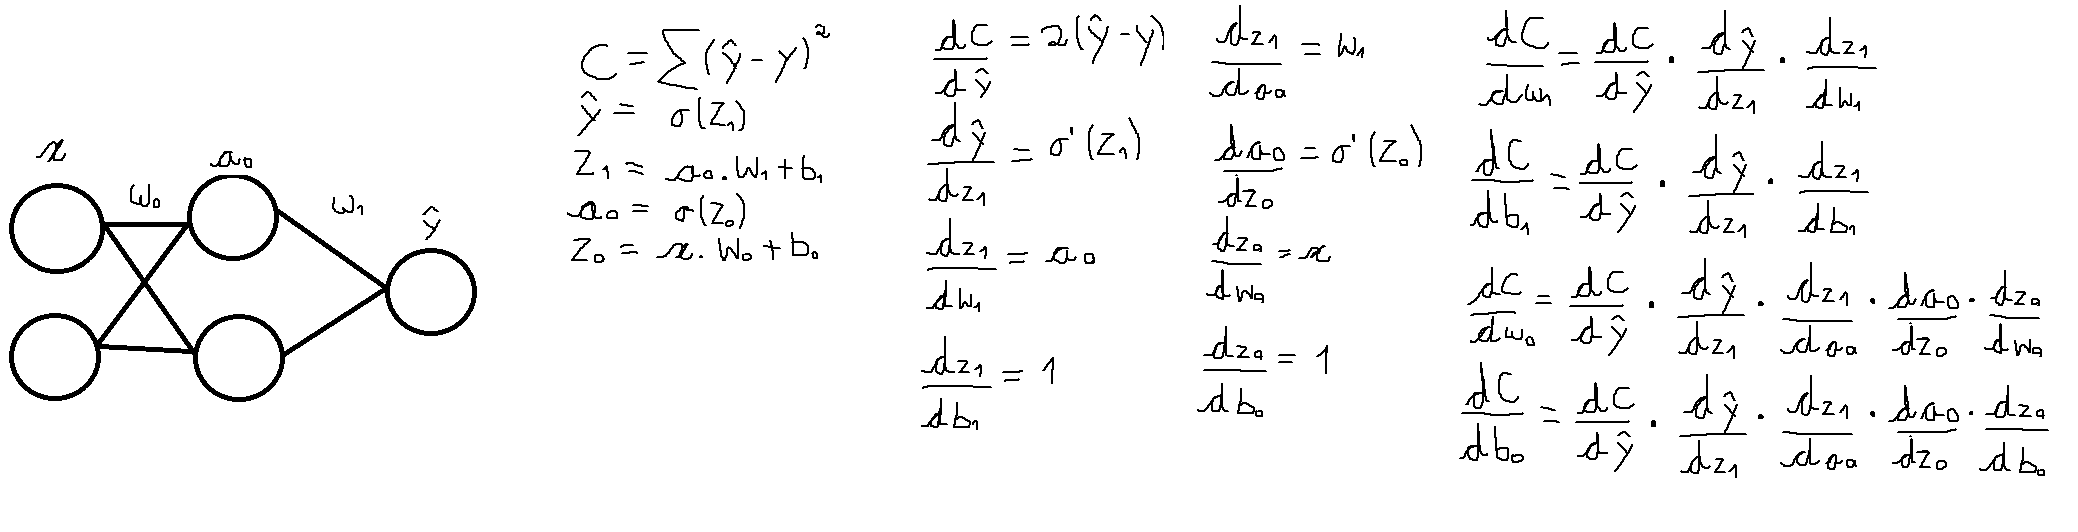 x
a₀
w₀
w₁
ŷ
C = ∑(ŷ - y)²
ŷ = σ(z₁)
z₁ = a₀ . w₁ + b₁
a₀ = σ(z₀)
z₀ = x . w₀ + b₀
dC/dŷ = 2(ŷ - y)
dŷ/dz₁ = σ'(z₁)
dz₁/dw₁ = a₀
dz₁/db₁ = 1
dz₁/da₀ = w₁
da₀/dz₀ = σ'(z₀)
dz₀/dw₀ = x
dz₀/db₀ = 1
dC/dw₁ = dC/dŷ · dŷ/dz₁ · dz₁/dw₁
dC/db₁ = dC/dŷ · dŷ/dz₁ · dz₁/db₁
dC/dw₀ = dC/dŷ · dŷ/dz₁ · dz₁/da₀ · da₀/dz₀ · dz₀/dw₀
dC/db₀ = dC/dŷ · dŷ/dz₁ · dz₁/da₀ · da₀/dz₀ · dz₀/db₀